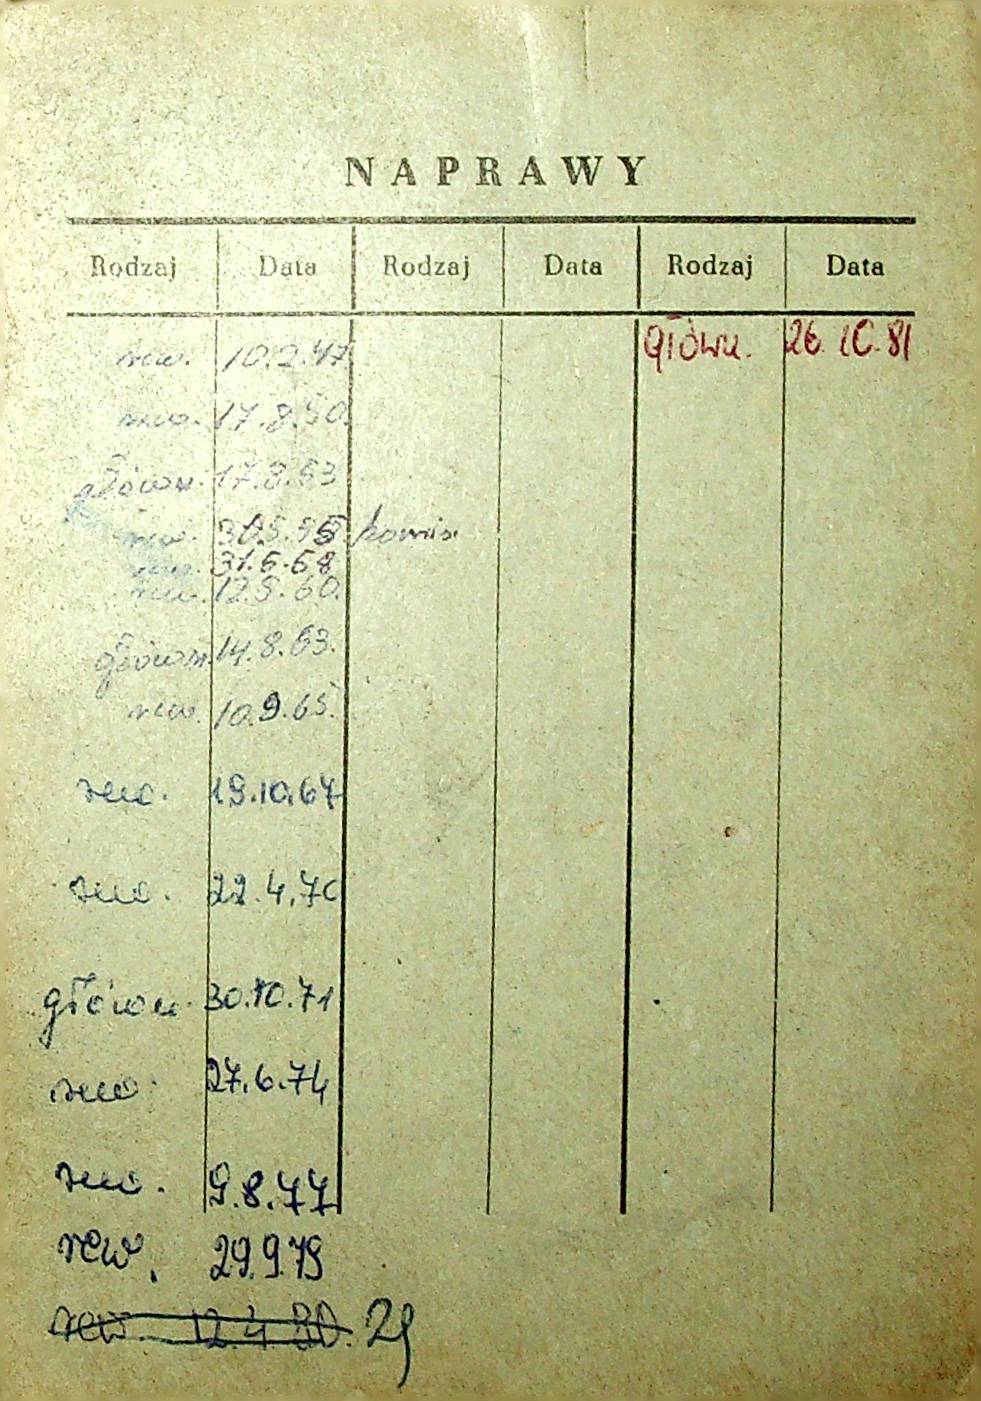 NAPRAWY
Rodzaj Data Rodzaj Data Rodzaj Data
rew. 10.2.47 główn. 26.10.81
rew. 17.8.50.
główn. 17.8.53
rew. 30.5.55 komis.
rew. 31.5.58
rew. 12.5.60.
główn. 14.8.63.
rew. 10.9.65.
rew. 19.10.67
rew. 22.4.70
główn. 30.10.71
rew. 27.6.74
rew. 9.8.77
rew. 29.9.79
rew. 12.4.80.